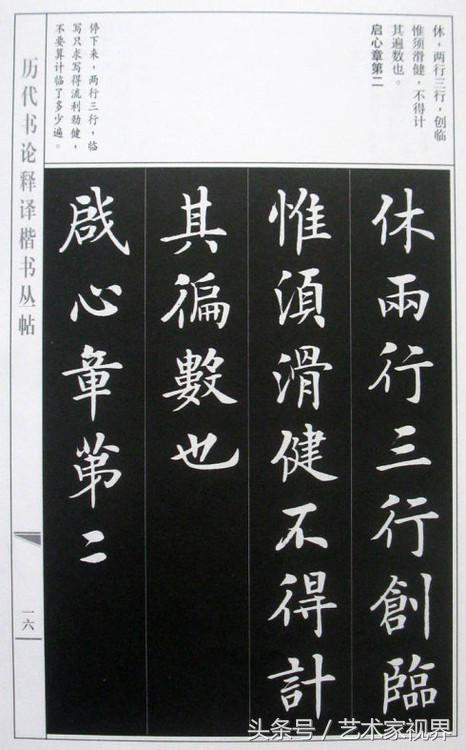 休，两行三行，创临
惟须滑健，不得计
其遍数也。
启心章第二
停下来，两行三行，临
写只求写得流利劲健，
不要算计临了多少遍。
休兩行三行創臨
惟須滑健不得計
其徧數也
啟心章第二
历代书论释译楷书丛帖
一六
头条号／艺术家视界